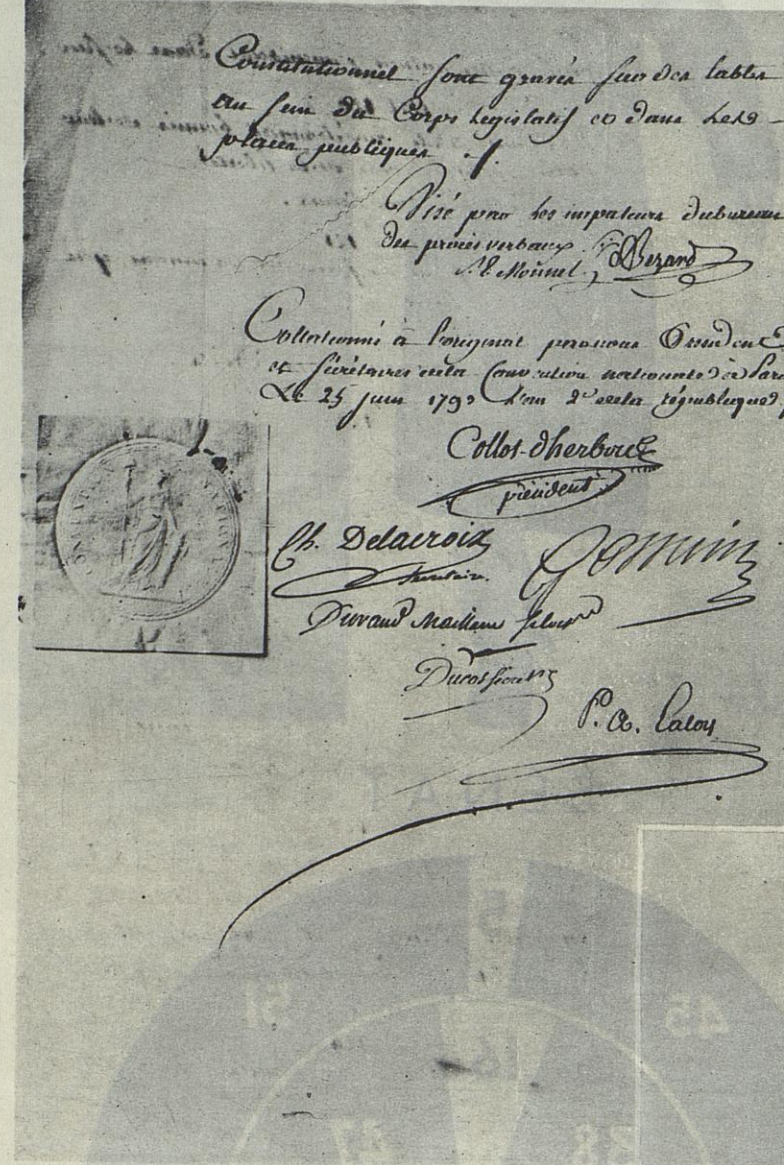 Constitutionnel sont gravés sur des tables
au sein du Corps Legislatif et dans les
places publiques ./.
Visé par les inspecteurs du bureau
des procès verbaux.
S. E. Monnel. Bezard
Collationné à l'original par nous Président
et Secrétaires de la Convention nationale à Paris
Le 25 juin 1793 l'an 2e de la république
Collot-dherbois
président
Ch. Delacroix Gossuin
secrétaire
Durand Maillane secret
Ducos secret
P. A. Laloy
SENAT
5
51 45
16
47 38